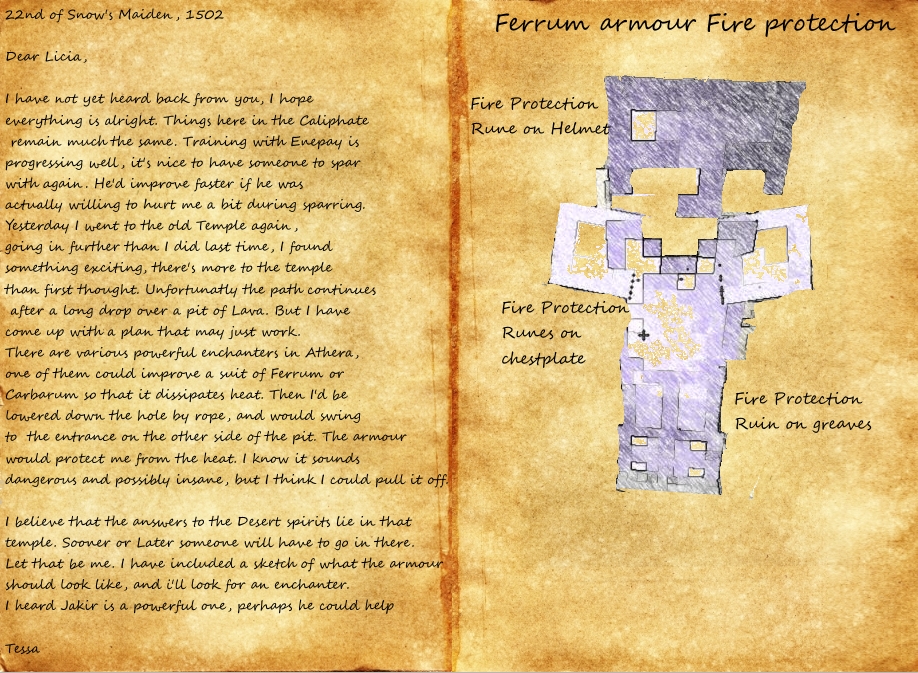 22nd of Snow's Maiden, 1502
Dear Licia,
I have not yet heard back from you, I hope
everything is alright. Things here in the Caliphate
remain much the same. Training with Enepay is
progressing well, it's nice to have someone to spar
with again. He'd improve faster if he was
actually willing to hurt me a bit during sparring.
Yesterday I went to the old Temple again,
going in further than I did last time, I found
something exciting, there's more to the temple
than first thought. Unfortunatly the path continues
after a long drop over a pit of Lava. But I have
come up with a plan that may just work.
There are various powerful enchanters in Athera,
one of them could improve a suit of Ferrum or
Carbarum so that it dissipates heat. Then I'd be
lowered down the hole by rope, and would swing
to the entrance on the other side of the pit. The armour
would protect me from the heat. I know it sounds
dangerous and possibly insane, but I think I could pull it off.
I believe that the answers to the Desert spirits lie in that
temple. Sooner or Later someone will have to go in there.
Let that be me. I have included a sketch of what the armour
should look like, and i'll look for an enchanter.
I heard Jakir is a powerful one, perhaps he could help
Tessa
Ferrum armour Fire protection
Fire Protection
Rune on Helmet
Fire Protection
Runes on
chestplate
Fire Protection
Ruin on greaves